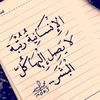 الإنسانية رتبة
لا يصل إليها كل
البشر